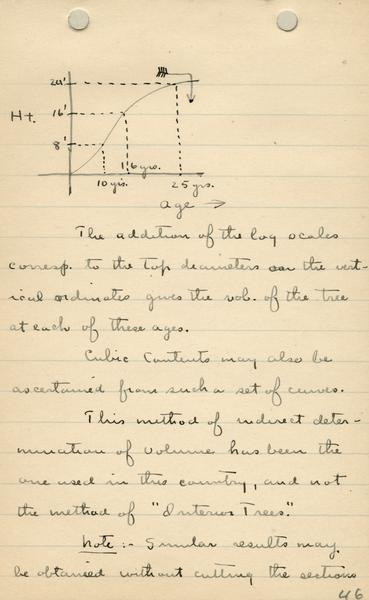 24'
Ht. 16'
8'
16 yrs.
10 yrs. 25 yrs.
age →
The addition of the log scales
corresp. to the top diameters on the vert-
ical ordinates gives the vol. of the tree
at each of these ages.
Cubic Contents may also be
ascertained from such a set of curves.
This method of indirect deter-
mination of volume has been the
one used in this country, and not
the method of "Interior Trees".
Note :- Similar results may
be obtained without cutting the sections
46